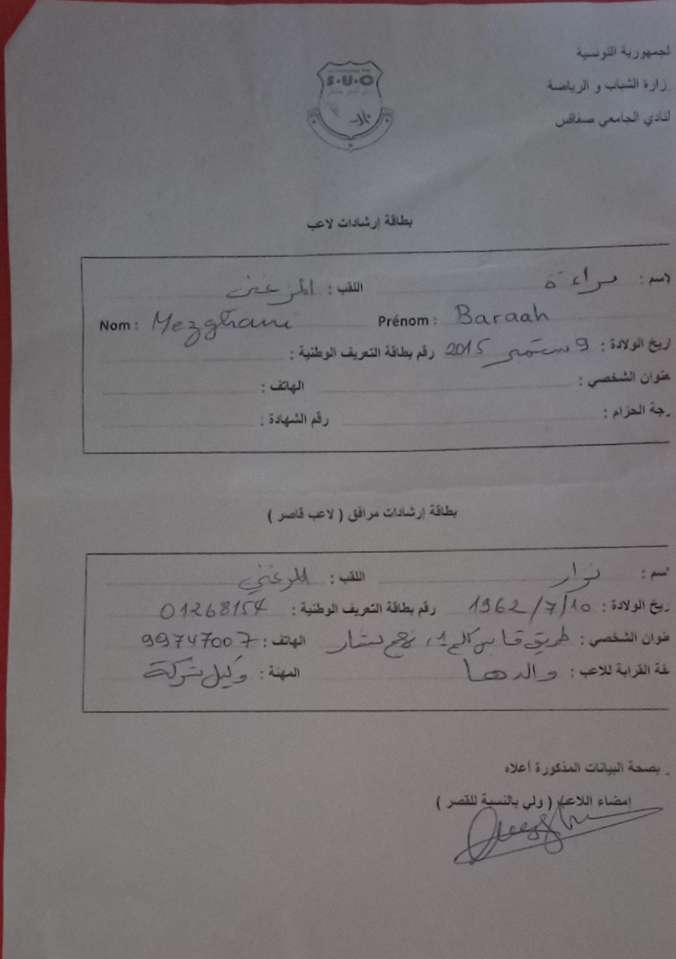 لجمهورية التونسية
زارة الشباب و الرياضة
لنادي الجامعي صفاقس
S.U.O
بطاقة إرشادات لاعب
لاسم : براءة اللقب : المزغني
Nom : Mezghani Prénom : Baraah
اريخ الولادة : 9 سبتمبر 2015 رقم بطاقة التعريف الوطنية :
عنوان الشخصي : الهاتف :
رجة الحزام : رقم الشهادة :
بطاقة إرشادات مرافق ( لاعب قاصر )
اسم : نوار اللقب : المزغني
ريخ الولادة : 1962/7/10 رقم بطاقة التعريف الوطنية : 01268154
نوان الشخصي : طريق قابس كلم 1، نهج بشار الهاتف : 99747007
فة القرابة للاعب : والدها المهنة : وكيل شركة
بصحة البيانات المذكورة أعلاه
إمضاء اللاعب ( ولي بالنسبة للقصر )